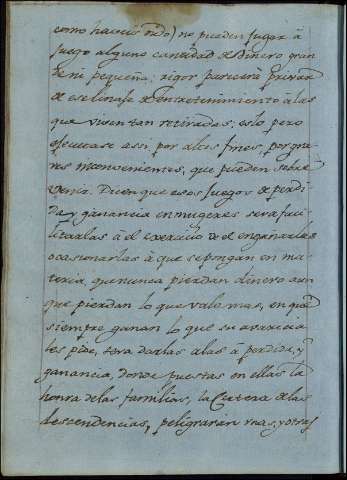 como haveis oydo) no pueden jugar à
juego alguno cantidad de Dinero gran
de ni pequeña; rigor parecerà privar
de ese linaje de entretenimiento à las
que viven tan retiradas; eslo pero
ejecutase assi por altos fines, por gra
ves inconvenientes, que pueden sobre
venir. Dicen que esos juegos de perdi
da y ganancia en mugeres sera faci
litarlas à el exercicio de el engañarlas
ocasionarlas à que se pongan en ma
teria, que nunca pierdan dinero aun
que pierdan lo que vale mas, en que
siempre ganan lo que su avaricia
les pide, sera darlas alas à perdida, y
ganancia, donde puestas en ellas la
honra de las familias, la de las
descendencias, peligraràn unas, y otras